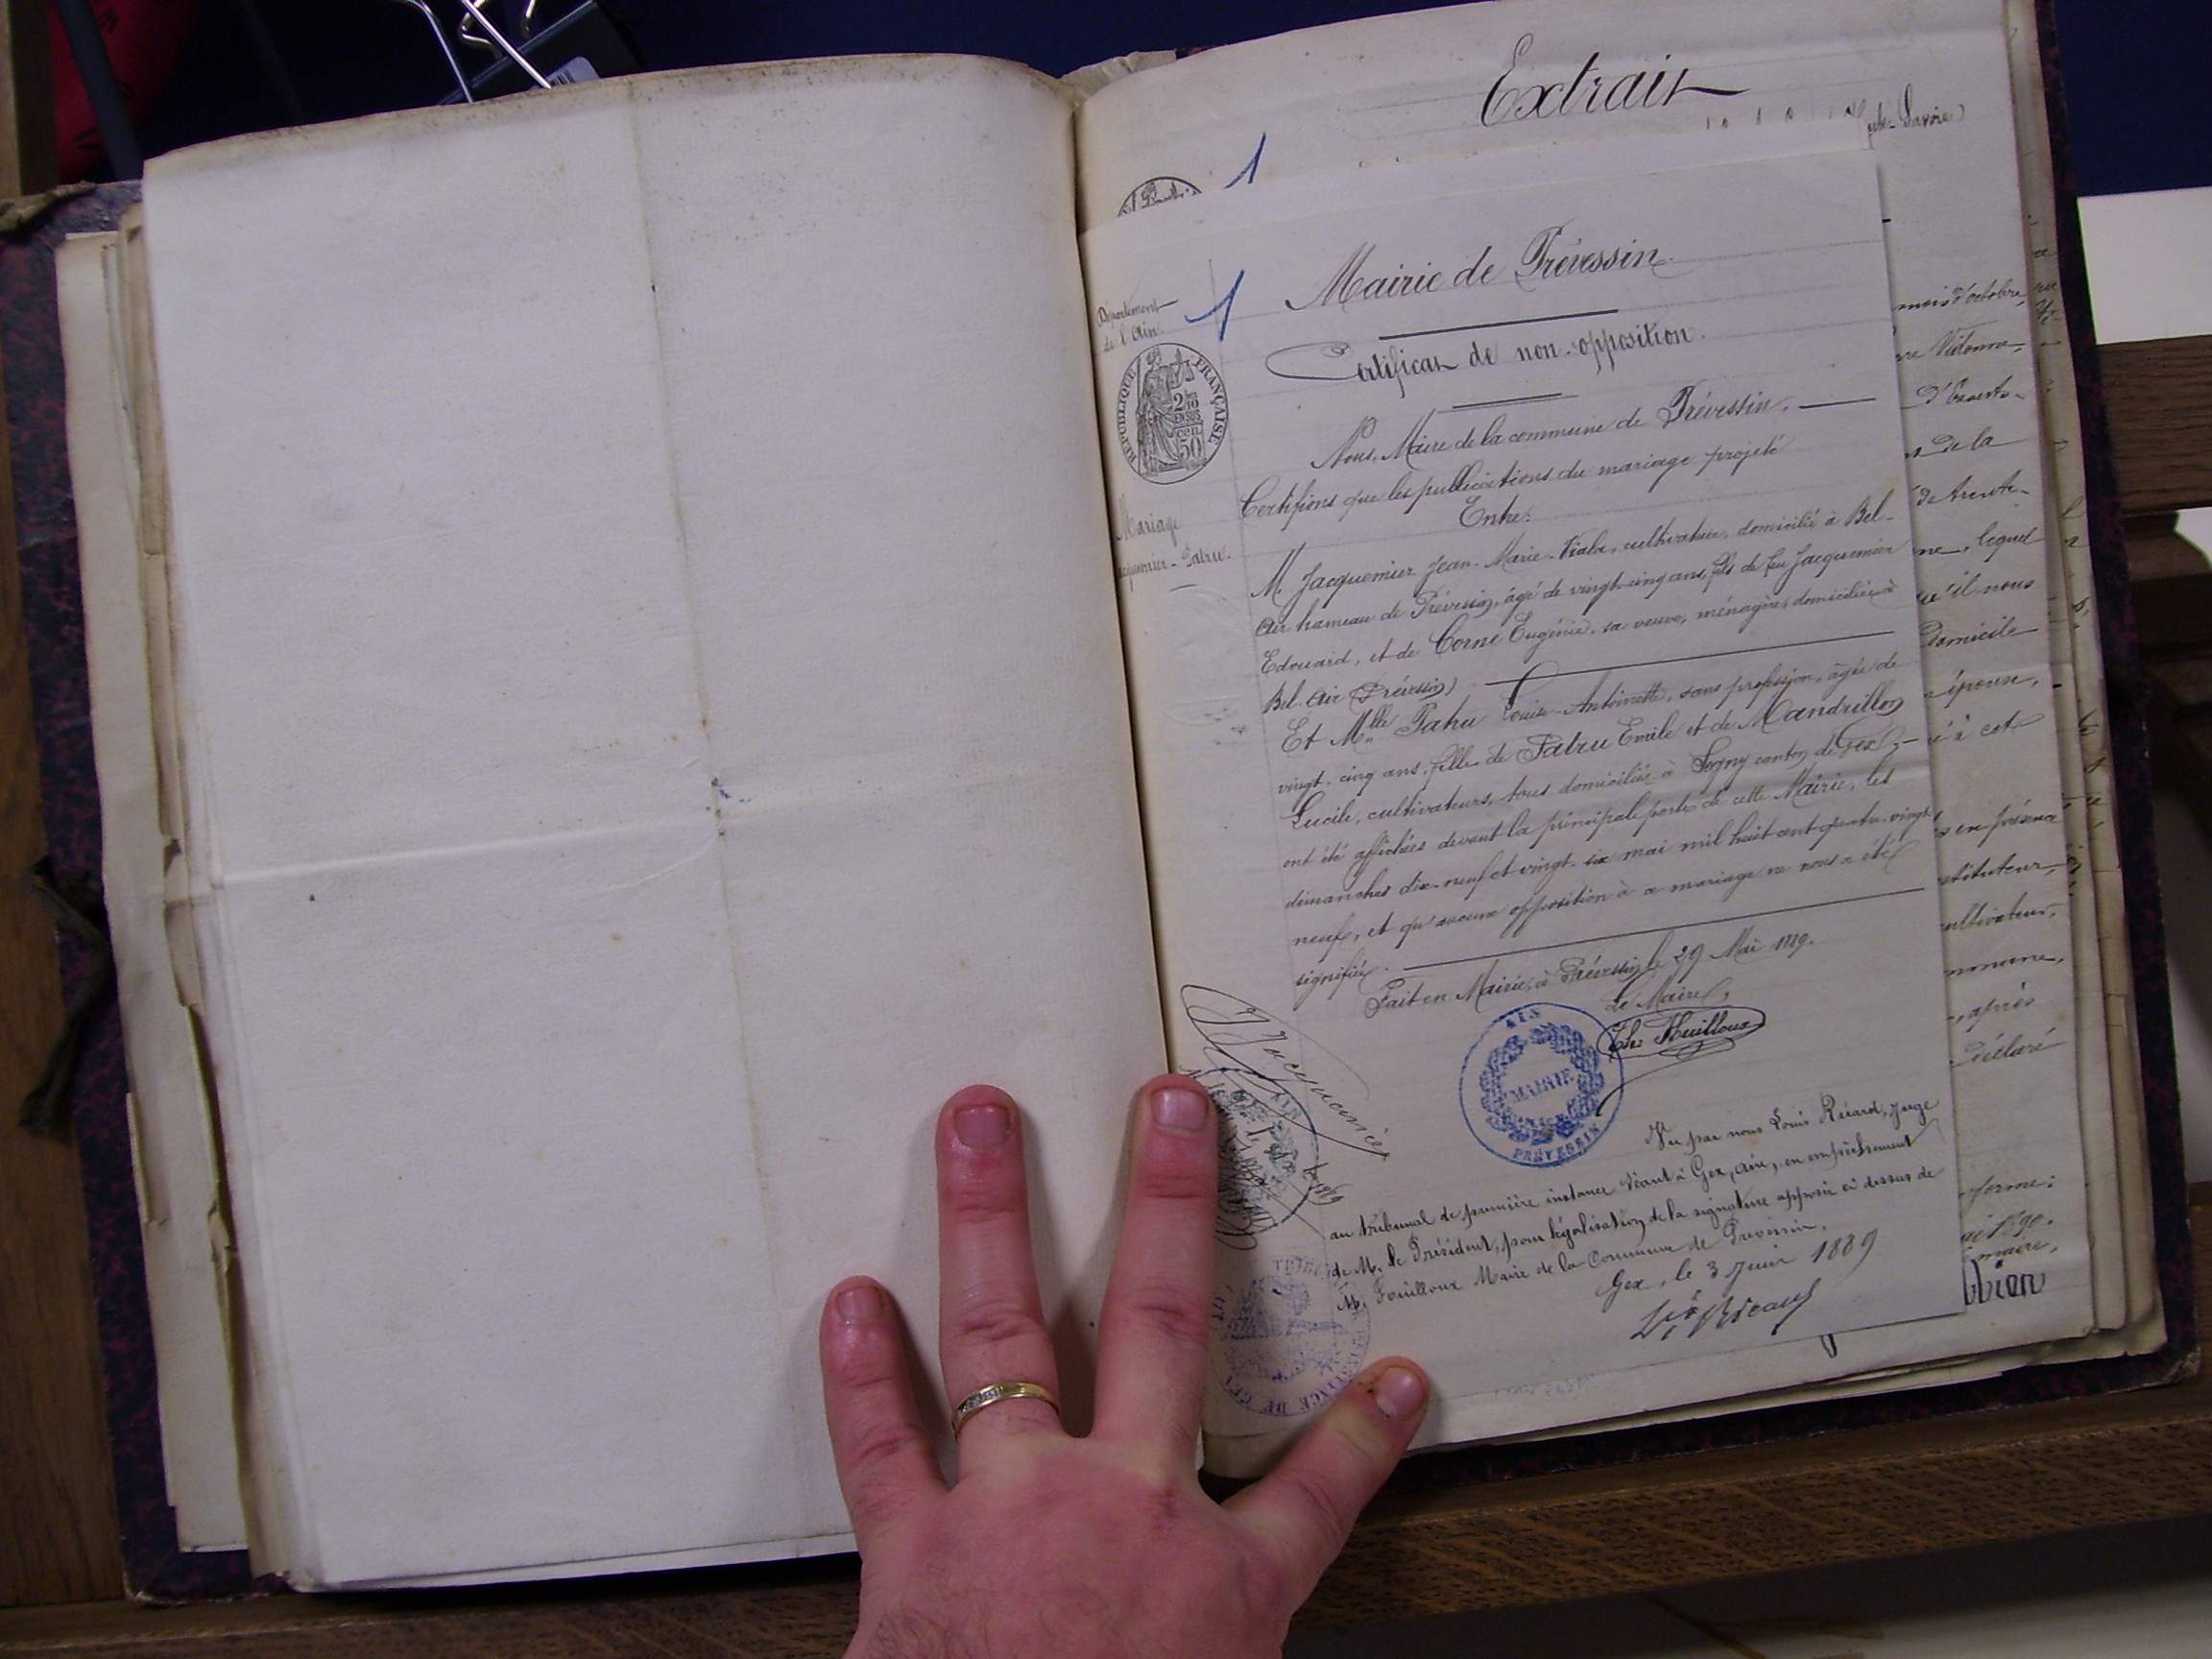 Extrait
Savoie)
1
1
Département
de l'Ain.
RÉPUBLIQUE FRANÇAISE
2/10
EN SUS
cen
50
Mariage
Jacquemier - Patru.
Mairie de Prévessin.
Certificat de non-opposition.
Nous, Maire de la commune de Prévessin,
Certifions que les publications du mariage projeté
Entre:
M. Jacquemier Jean-Marie-Viala, cultivateur, domicilié à Bel-
Air hameau de Prévessin, âgé de vingt-cinq ans, fils de feu Jacquemier
Edouard, et de Corne Eugénie, sa veuve, ménagère, domiciliée à
Bel-Air (Prévessin)
Et Mlle Patru Louise-Antoinette, sans profession, âgée de
vingt-cinq ans, fille de Patru Emile et de Mandrillon
Lucile, cultivateurs, tous domiciliés à Segny canton de Gex,
ont été affichées devant la principale porte de cette Mairie, les
dimanches dix-neuf et vingt-six mai mil huit cent quatre-vingt
neuf, et qu'aucune opposition à ce mariage ne nous a été
signifiée.
Fait en Mairie, à Prévessin le 29 Mai 1889.
Le Maire,
AIN
MAIRIE
PRÉVESSIN
Jacquemier
Vu par nous Louis Ricard, Juge
au tribunal de première instance séant à Gex, Ain, en empêchement
de M. le Président, pour légalisation de la signature apposée ci dessus de
M. Fouilloux Maire de la Commune de Prévessin.
Gex, le 3 Juin 1889
INSTANCE DE GEX
mois d'octobre
de la
de trente-
lequel
qu'il nous
domicile
épouse,
à cet
en présence
instituteur,
cultivateur,
commune,
, après
déclaré
forme:
1890.
maire,